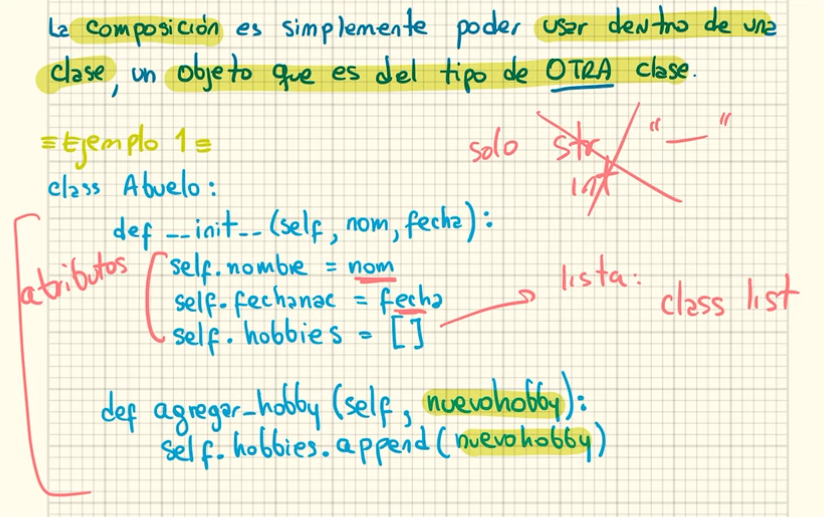 La composición es simplemente poder usar dentro de una
clase, un objeto que es del tipo de OTRA clase.
=Ejemplo 1=
solo str int "—"
class Abuelo:
def __init__(self, nom, fecha):
atributos
self.nombre = nom
self.fechanac = fecha
self.hobbies = []
lista: class list
def agregar_hobby (self, nuevohobby):
self.hobbies.append(nuevohobby)